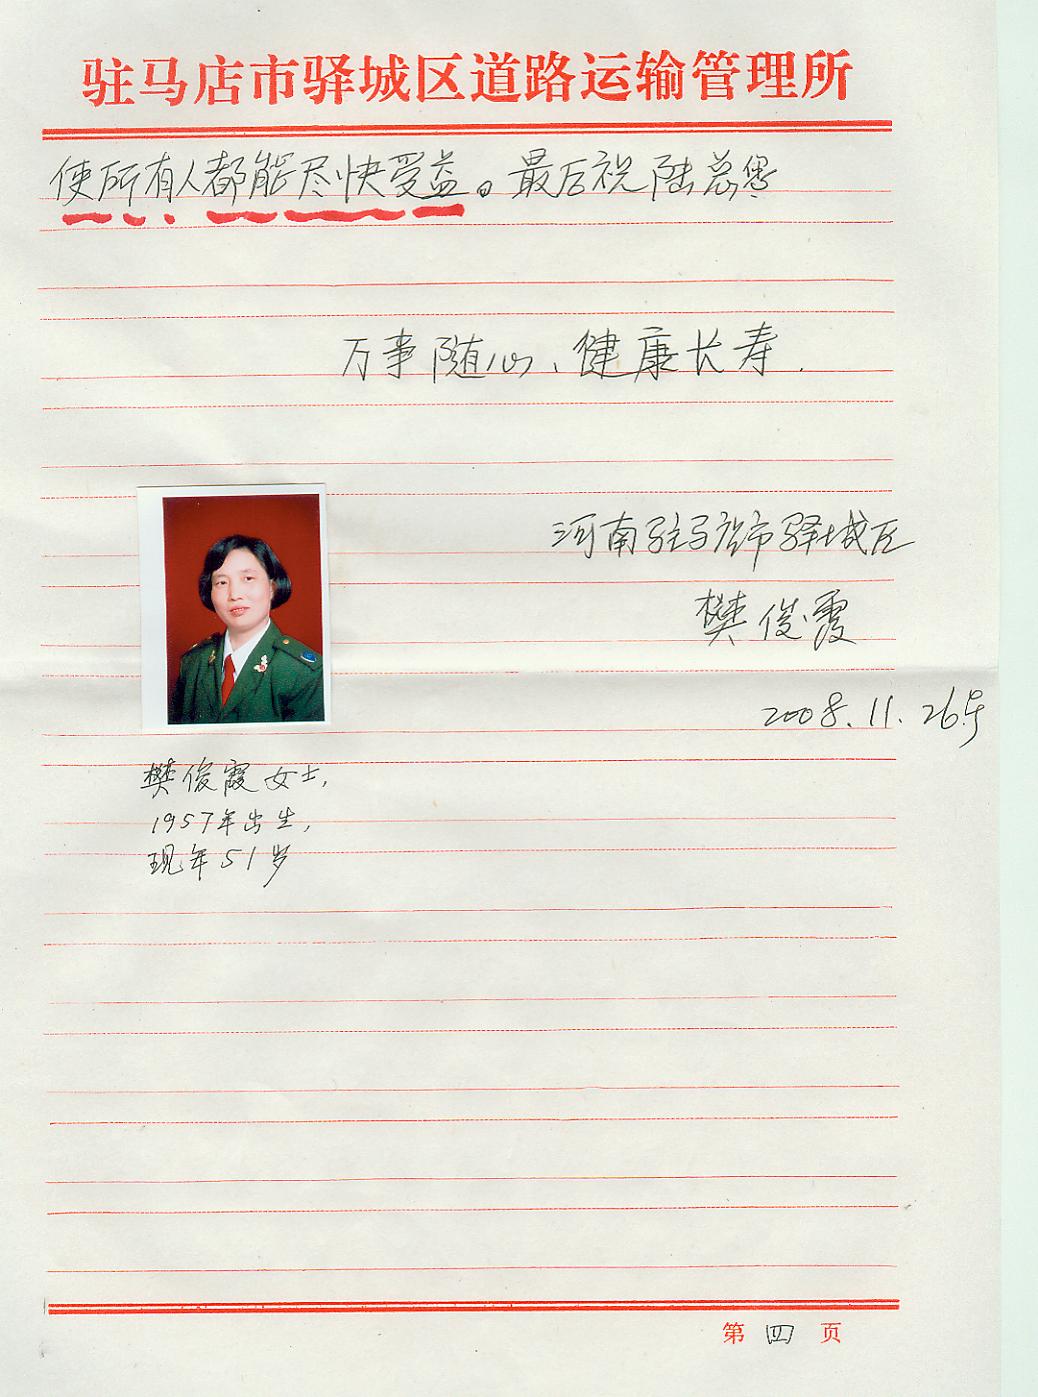 驻马店市驿城区道路运输管理所
使所有人都能尽快受益。最后祝陆总您
万事随心、健康长寿.
河南驻马店市驿城区
樊俊霞
2008.11.26号
樊俊霞女士,
1957年出生,
现年51岁
第四页